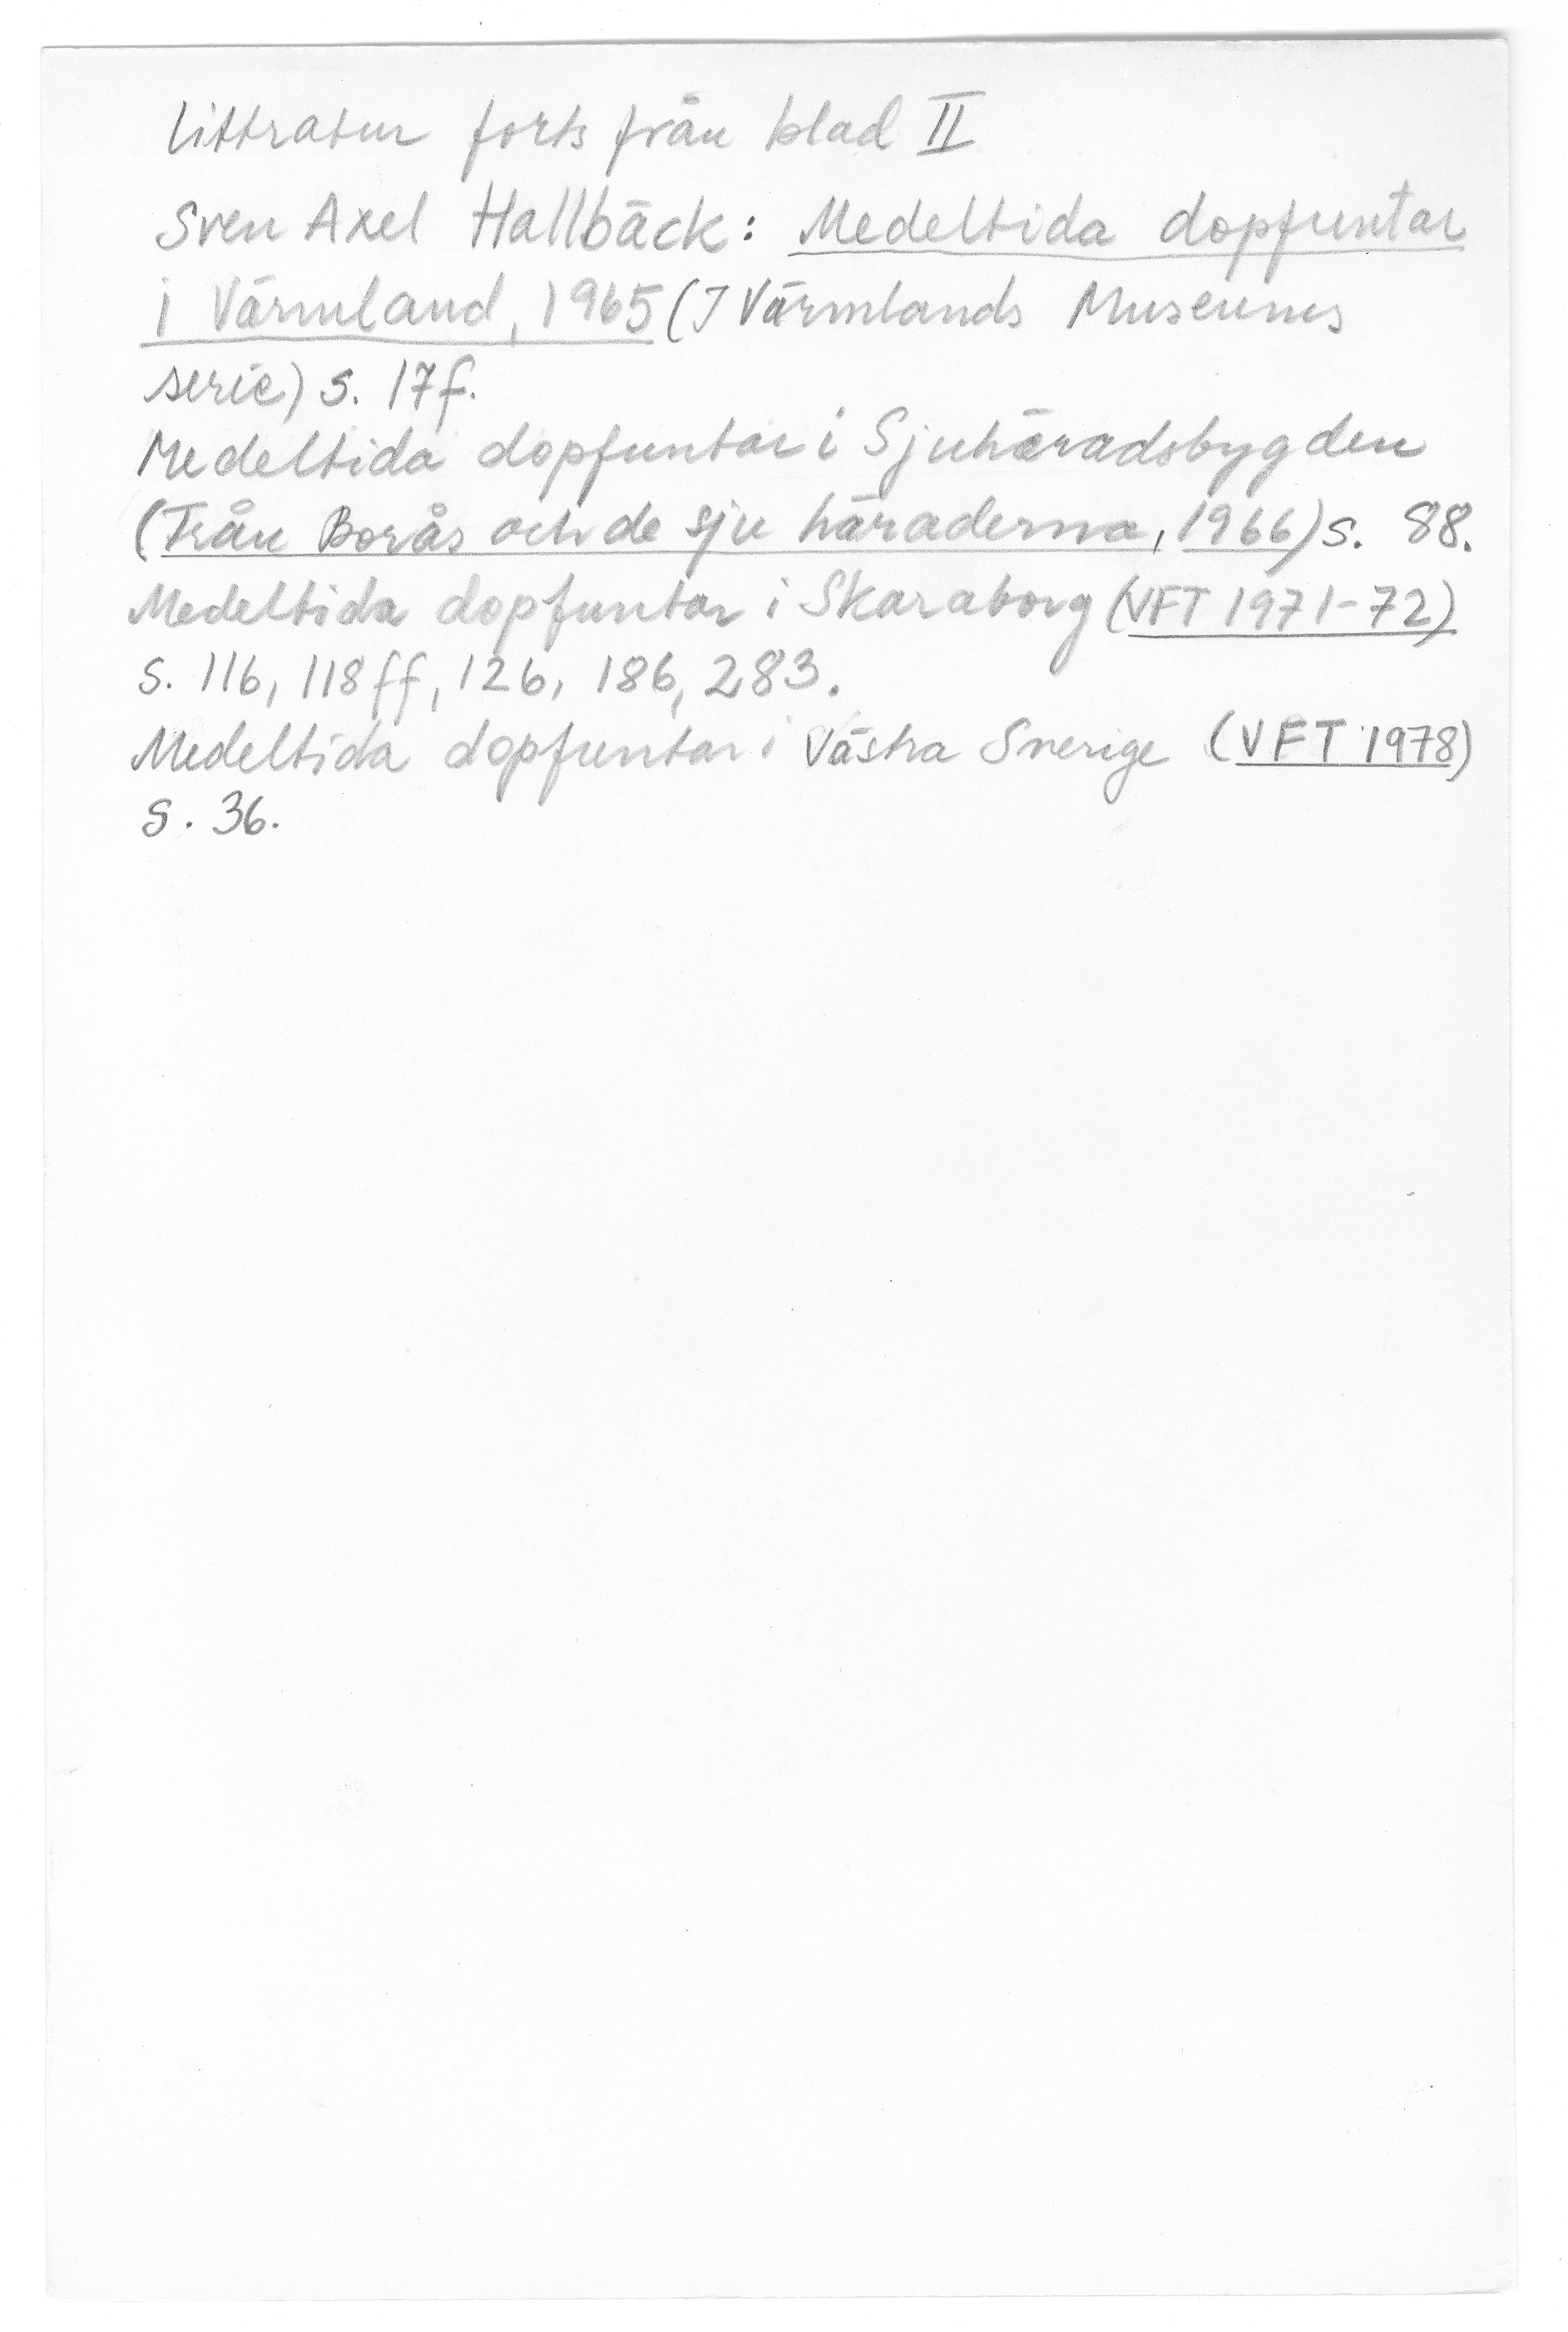 Littratur forts från blad II
Sven Axel Hallbäck: Medeltida dopfuntar
i Värmland, 1965 (I Värmlands Museums
serie) s. 17f.
Medeltida dopfuntar i Sjuhäradsbygden
(Från Borås och de sju häraderna, 1966) s. 88.
Medeltida dopfuntar i Skaraborg (VFT 1971-72)
s. 116, 118ff, 126, 186, 283.
Medeltida dopfuntar i Västra Sverige (VFT 1978)
s. 36.